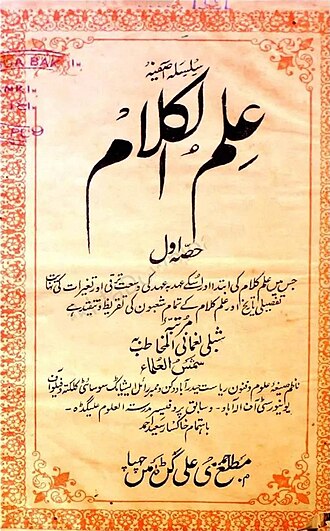 سلسلہ آصفیہ
علم الکلام
حصہ اول
جس میں علم کلام کی ابتدا اور اسکے عہد بہ عہد کی وسعت ترقی اور تغیرات کی
تفصیلی تاریخ اور علم کلام کے تمام شعبوں کی تقریظ و تنقید ہے
مرتبہ
شبلی نعمانی المخاطب بہ
شمس العلماء
ناظم صیغہ علوم و فنون ریاست حیدرآباد دکن و ممبر رائل ایشیاٹک سوسائٹی کلکتہ و فیلو آف
یونیورسٹی آف الہ آباد - و سابق پروفیسر مدرستہ العلوم علیگڈہ -
باہتمام خاکسار سعید احمد
مطبع احمدی علی گڈہ میں چھپا